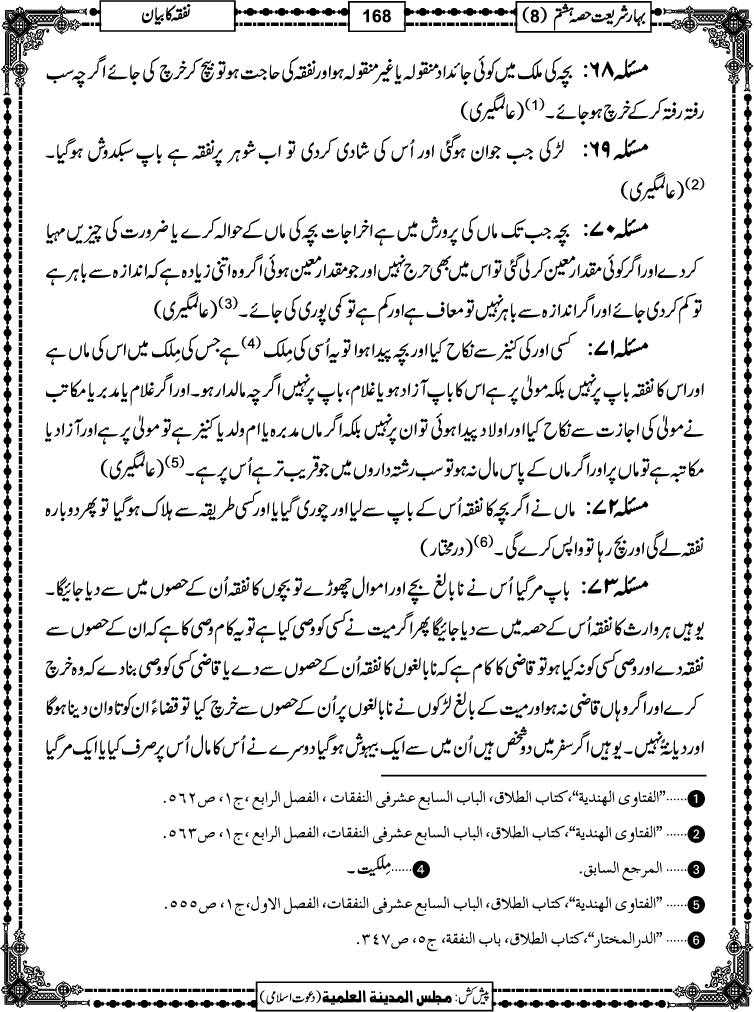 بہار شریعت حصہ ہشتم (8)
168
نفقہ کا بیان
مسئلہ ۶۸: بچہ کی ملک میں کوئی جائداد منقولہ یا غیر منقولہ ہو اور نفقہ کی حاجت ہو تو بیچ کر خرچ کی جائے اگرچہ سب
رفتہ رفتہ کر کے خرچ ہو جائے۔(1) (عالمگیری)
مسئلہ ۶۹: لڑکی جب جوان ہوگئی اور اُس کی شادی کردی تو اب شوہر پر نفقہ ہے باپ سبکدوش ہوگیا۔
(2) (عالمگیری)
مسئلہ ۷۰: بچہ جب تک ماں کی پرورش میں ہے اخراجات بچہ کی ماں کے حوالہ کرے یا ضرورت کی چیزیں مہیا
کردے اور اگر کوئی مقدار معین کر لی گئی تو اس میں بھی حرج نہیں اور جو مقدار معین ہوئی اگر وہ اتنی زیادہ ہے کہ اندازہ سے باہر ہے
تو کم کردی جائے اور اگر اندازہ سے باہر نہیں تو معاف ہے اور کم ہے تو کمی پوری کی جائے۔(3) (عالمگیری)
مسئلہ ۷۱: کسی اور کی کنیز سے نکاح کیا اور بچہ پیدا ہوا تو یہ اُسی کی مِلک (4) ہے جس کی مِلک میں اس کی ماں ہے
اور اس کا نفقہ باپ پر نہیں بلکہ مولیٰ پر ہے اس کا باپ آزاد ہو یا غلام، باپ پر نہیں اگرچہ مالدار ہو۔ اور اگر غلام یا مدبر یا مکاتب
نے مولیٰ کی اجازت سے نکاح کیا اور اولاد پیدا ہوئی تو ان پر نہیں بلکہ اگر ماں مدبرہ یا ام ولد یا کنیز ہے تو مولیٰ پر ہے اور آزاد یا
مکاتبہ ہے تو ماں پر اور اگر ماں کے پاس مال نہ ہو تو سب رشتہ داروں میں جو قریب تر ہے اُس پر ہے۔(5) (عالمگیری)
مسئلہ ۷۲: ماں نے اگر بچہ کا نفقہ اُس کے باپ سے لیا اور چوری گیا یا اور کسی طریقہ سے ہلاک ہوگیا تو پھر دوبارہ
نفقہ لے گی اور بچ رہا تو واپس کرے گی۔(6) (درمختار)
مسئلہ ۷۳: باپ مر گیا اُس نے نابالغ بچے اور اموال چھوڑے تو بچوں کا نفقہ اُن کے حصوں میں سے دیا جائیگا۔
یوہیں ہر وارث کا نفقہ اُس کے حصہ میں سے دیا جائیگا پھر اگر میت نے کسی کو وصی کیا ہے تو یہ کام وصی کا ہے کہ ان کے حصوں سے
نفقہ دے اور وصی کسی کو نہ کیا ہو تو قاضی کا کام ہے کہ نابالغوں کا نفقہ اُن کے حصوں سے دے یا قاضی کسی کو وصی بنادے کہ وہ خرچ
کرے اور اگر وہاں قاضی نہ ہو اور میت کے بالغ لڑکوں نے نابالغوں پر اُن کے حصوں سے خرچ کیا تو قضاءً ان کو تاوان دینا ہوگا
اور دیانۃً نہیں۔ یوہیں اگر سفر میں دو شخص ہیں اُن میں سے ایک بیہوش ہوگیا دوسرے نے اُس کا مال اُس پر صرف کیا یا ایک مر گیا
1 ......"الفتاوی الهندیة"،کتاب الطلاق، الباب السابع عشرفی النفقات ، الفصل الرابع ،ج١، ص٥٦٢.
2 ...... "الفتاوی الهندیة"،کتاب الطلاق، الباب السابع عشرفی النفقات، الفصل الرابع ،ج١، ص٥٦٣.
3 ...... المرجع السابق. 4 ......مِلکیت۔
5 ...... "الفتاوی الهندیة"،کتاب الطلاق، الباب السابع عشرفی النفقات، الفصل الاول،ج١، ص٥٥٥.
6 ...... "الدرالمختار"،کتاب الطلاق، باب النفقة، ج٥، ص٣٤٧.
پیش کش: مجلس المدینة العلمیة (دعوت اسلامی)